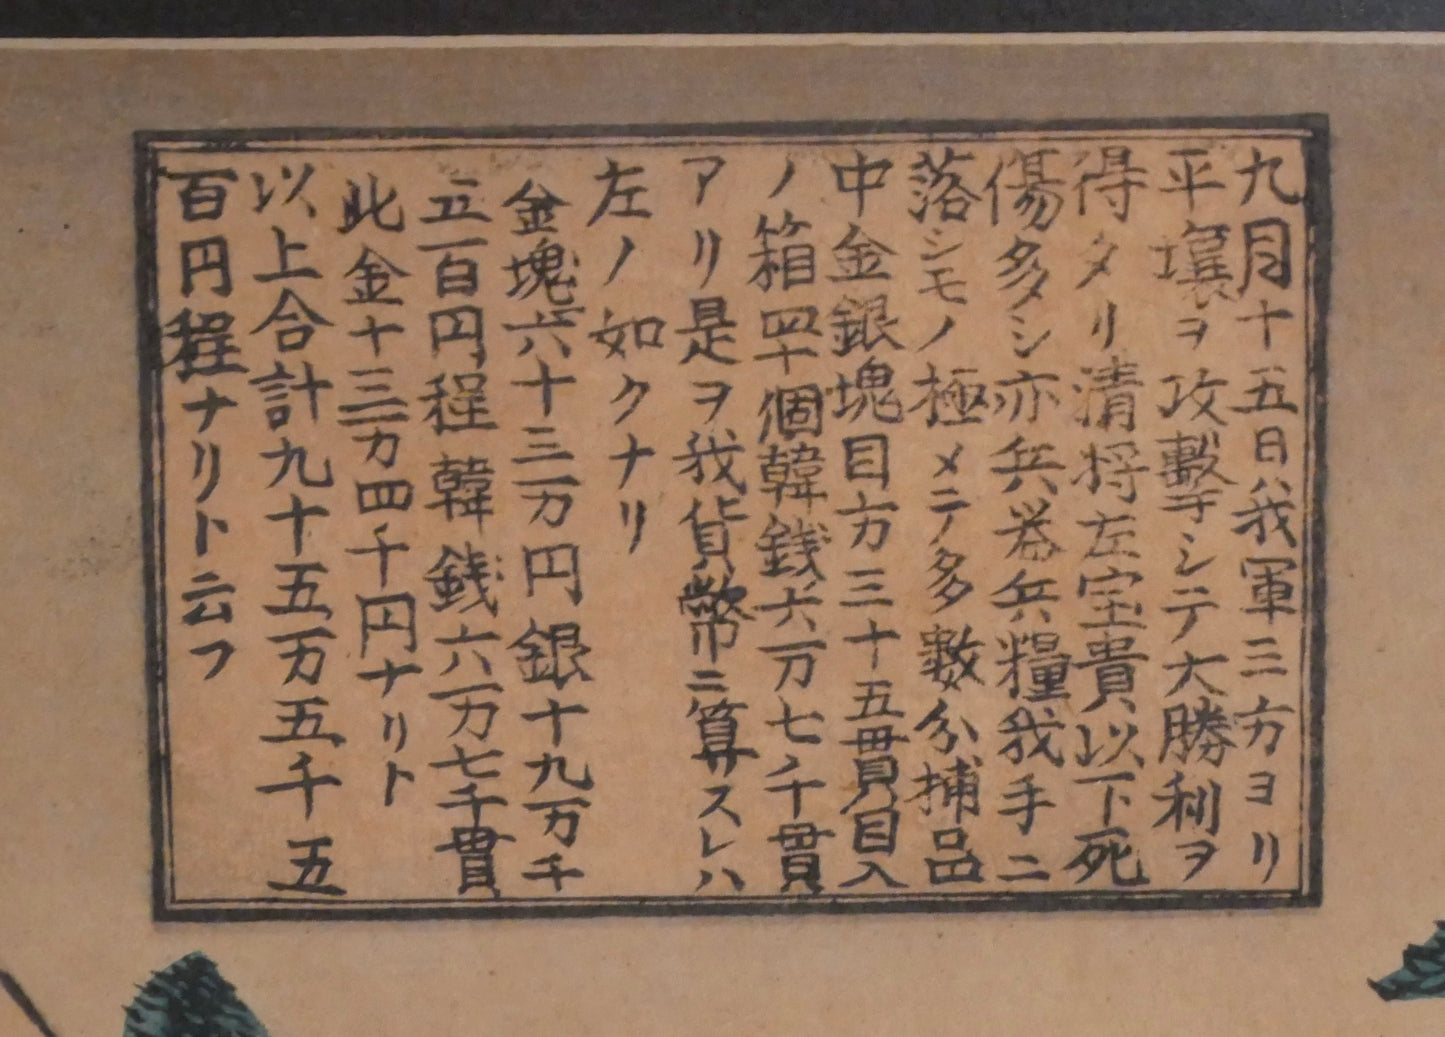 九月十五日我軍三方ヨリ
平壌ヲ攻撃シテ大勝利ヲ
得タリ清将左宝貴以下死
傷多シ亦兵器兵糧我手ニ
落シモノ極メテ多数分捕品
中金銀塊目方三十五貫目入
ノ箱四十個韓銭六万七千貫
アリ是ヲ我貨幣ニ算スレハ
左ノ如クナリ
金塊六十三万円銀十九万千
五百円程韓銭六万七千貫
此金十三万四千円ナリト
以上合計九十五万五千五
百円程ナリト云フ